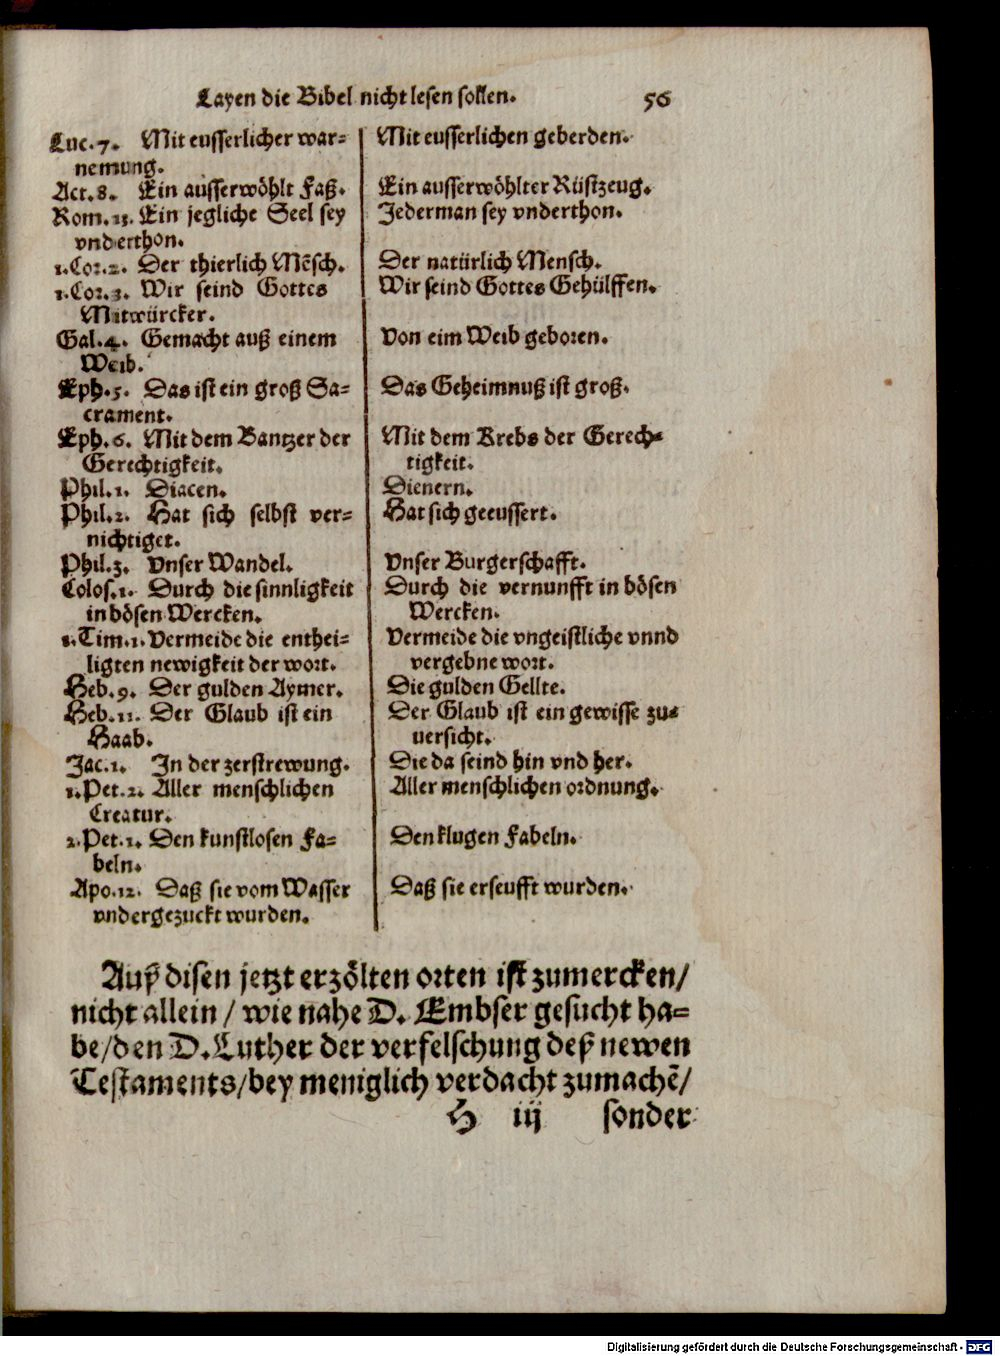 Layen die Bibel nicht lesen sollen. 56
Luc. 7. Mit eusserlicher war-
nemung.
Act. 8. Ein ausserwöhlt Faß.
Rom. 13. Ein jegliche Seel sey
vnderthon.
1. Cor. 2. Der thierlich Mẽsch.
1. Cor. 3. Wir seind Gottes
Mitwürcker.
Gal. 4. Gemacht auß einem
Weib.
Eph. 5. Das ist ein groß Sa-
crament.
Eph. 6. Mit dem Bantzer der
Gerechtigkeit.
Phil. 1. Diacen.
Phil. 2. Hat sich selbst ver-
nichtiget.
Phil. 3. Vnser Wandel.
Colos. 1. Durch die sinnligkeit
in bösen Wercken.
1. Tim. 1. Vermeide die enthei-
ligten newigkeit der wort.
Heb. 9. Der gulden Aymer.
Heb. 11. Der Glaub ist ein
Haab.
Jac. 1. In der zerstrewung.
1. Pet. 2. Aller menschlichen
Creatur.
2. Pet. 1. Den kunstlosen Fa-
beln.
Apo. 12. Daß sie vom Wasser
vndergezuckt wurden.
Mit eusserlichen geberden.
Ein ausserwöhlter Rüstzeug.
Jederman sey vnderthon.
Der natürlich Mensch.
Wir seind Gottes Gehülffen.
Von eim Weib geboren.
Das Geheimnuß ist groß.
Mit dem Krebs der Gerech-
tigkeit.
Dienern.
Hat sich geeussert.
Vnser Burgerschafft.
Durch die vernunfft in bösen
Wercken.
Vermeide die vngeistliche vnnd
vergebne wort.
Die gulden Gellte.
Der Glaub ist ein gewisse zu-
uersicht.
Die da seind hin vnd her.
Aller menschlichen ordnung.
Den klugen Fabeln.
Daß sie erseufft wurden.
Auß disen jetzt erzölten orten ist zumercken/
nicht allein / wie nahe D. Embser gesucht ha-
be/den D. Luther der verfelschung deß newen
Testaments/bey meniglich verdacht zumachẽ/
H iij sonder
Digitalisierung gefördert durch die Deutsche Forschungsgemeinschaft - DFG